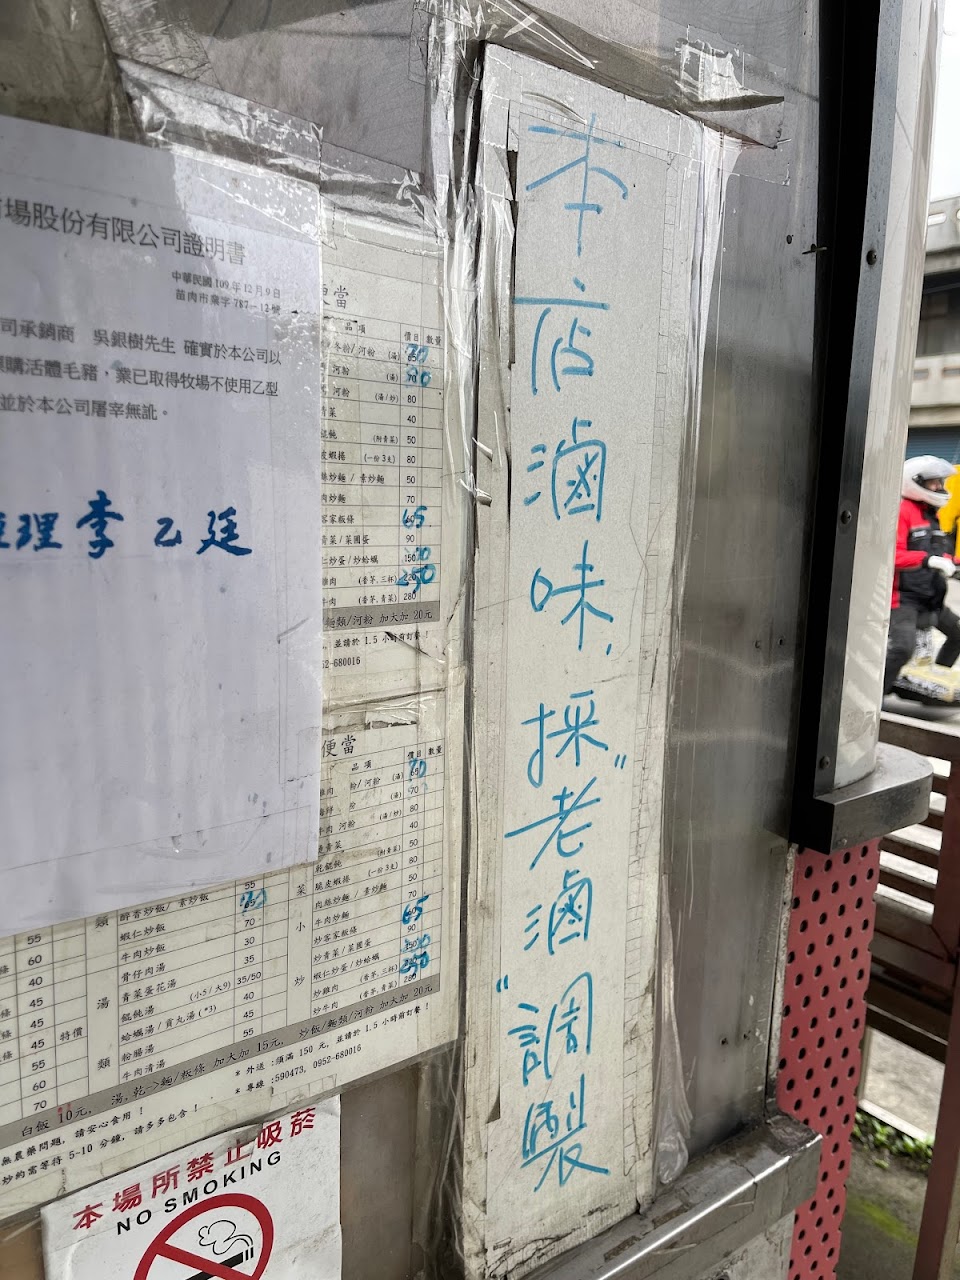 場股份有限公司證明書
中華民國 109 年 12 月 9 日
苗肉市業字 787-12 號
司承銷商 吳銀樹先生 確實於本公司以
購活體毛豬，業已取得牧場不使用乙型
並於本公司屠宰無訛。
理 李乙廷
本店滷味，採"老滷"調製
便當
品項 價目 數量
河粉 (湯) 70
河粉 (湯)
河粉 (湯/炒) 80
青菜 40
(附青菜) 50
蝦捲 (一份3支) 80
炒麵 / 素炒麵 50
肉炒麵 70
客家粄條 65
青菜/菜圃蛋 90
仁炒蛋/炒蛤蠣
雞肉 (香茅,三杯)
牛肉 (香茅,青菜) 280
麵類/河粉 加大加 20元
並請於 1.5 小時前訂餐！
52-680016
便當
品項 價目 數量
雞肉 粉/河粉 (湯) 70
(湯) 70
牛肉 河粉 (湯/炒) 80
青菜 40
乾餛飩 (附青菜) 50
脆皮蝦捲 (一份3支) 80
肉絲炒麵 / 素炒麵 50
牛肉炒麵 70
炒客家粄條 65
炒青菜/菜圃蛋 90
蝦仁炒蛋/炒蛤蠣
炒雞肉 (香茅,三杯)
炒牛肉 (香茅,青菜) 280
菜 小 炒
55
類 醉香炒飯/ 素炒飯 70
蝦仁炒飯 70
牛肉炒飯 30
骨仔肉湯 35
湯 青菜蛋花湯 (小5/大9) 35/50
餛飩湯 40
特價 蛤蠣湯/貢丸湯 (*3) 45
類 粉腸湯 55
牛肉清湯
條 55
60
條 40
條 45
條 45
條 55
60
70
白飯 10元, 湯,乾->麵/粄條 加大加 15元, 炒飯/麵類/河粉 加大加 20元
* 外送 :須滿 150 元, 並請於 1.5 小時前訂餐！
* 專線 :590473, 0952-680016
無農藥問題, 請安心食用！
炒約需等待 5-10 分鐘, 請多多包含！
本場所禁止吸菸
NO SMOKING